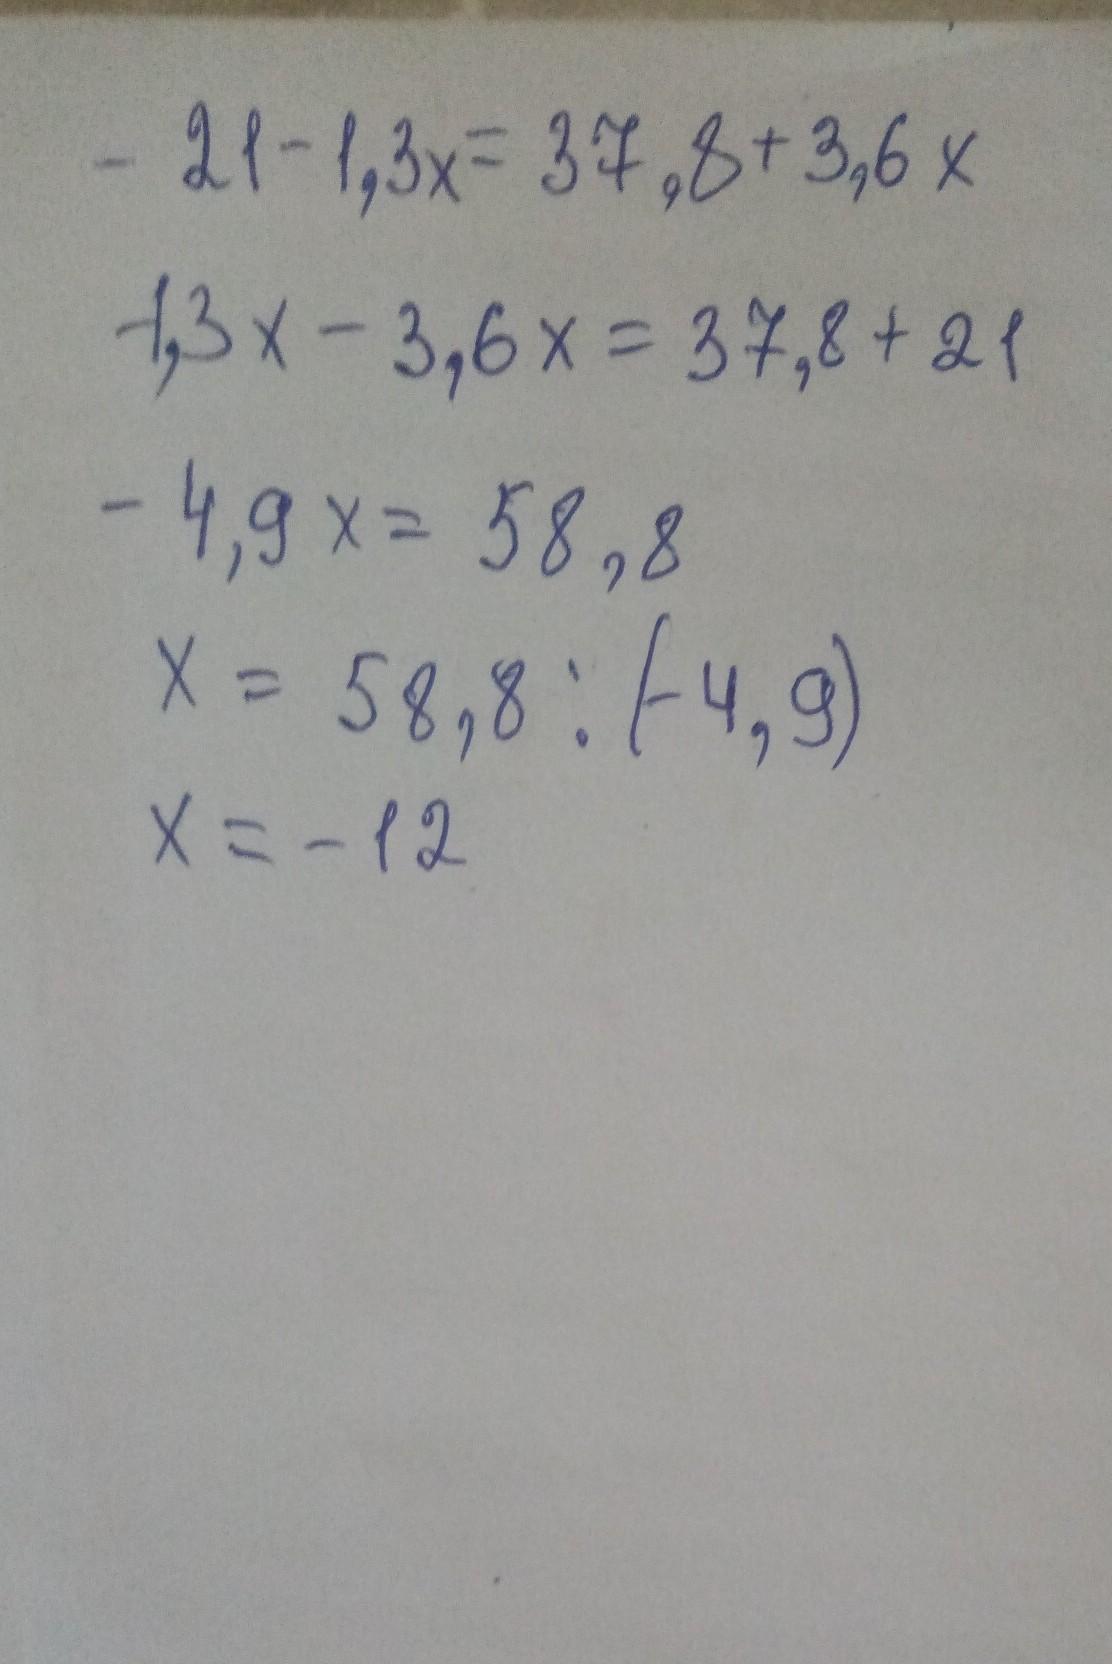 - 21 - 1,3x = 37,8 + 3,6x
-1,3x - 3,6x = 37,8 + 21
- 4,9x = 58,8
x = 58,8 : (-4,9)
x = -12